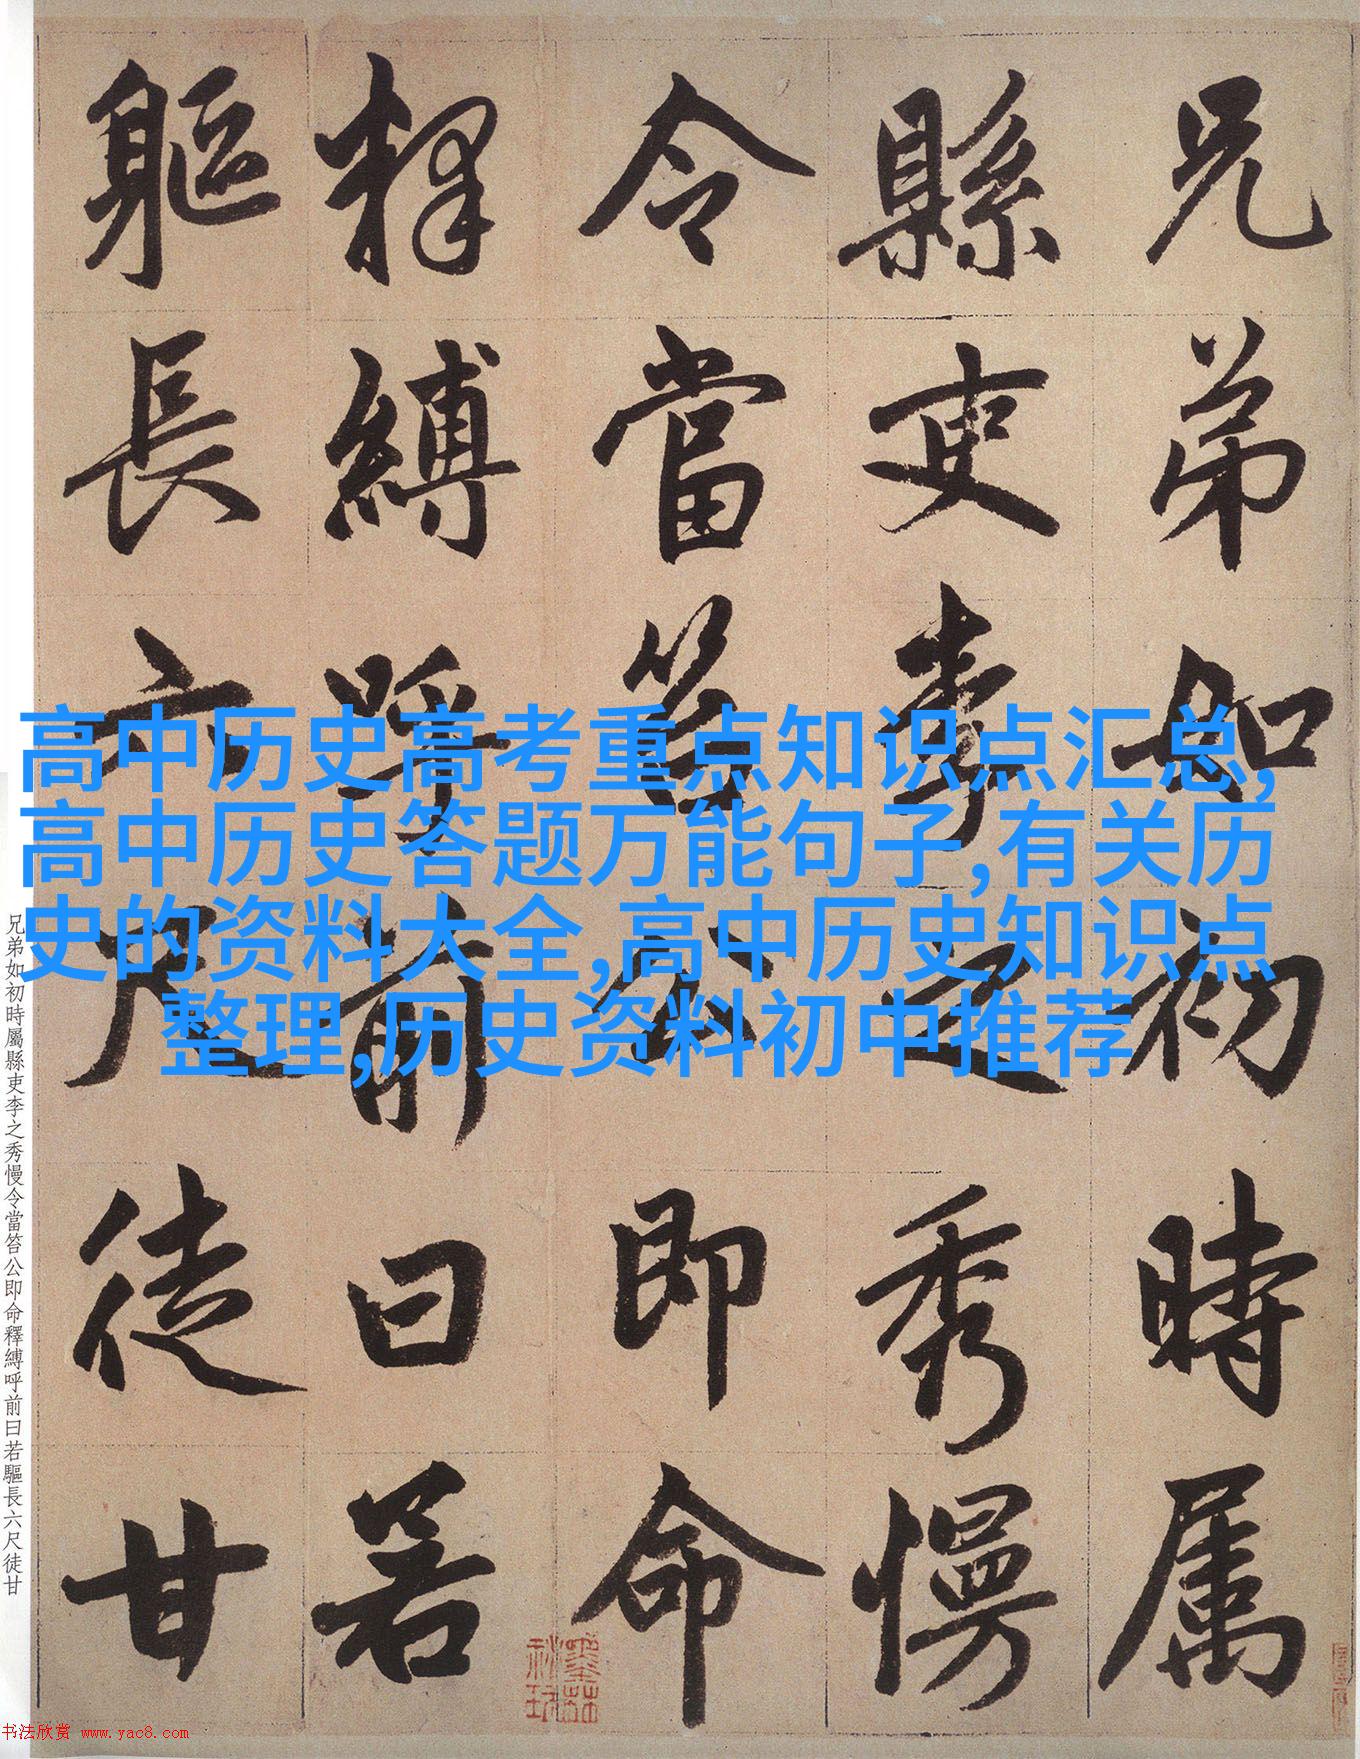 兄弟如初時属
縣吏李之秀慢
令當笞公即命
釋縛呼前曰若
軀長六尺徒甘
高中历史高考重点知识点汇总,
高中历史答题万能句子,有关历
史的资料大全,高中历史知识点
整理,历史资料初中推荐
兄弟如初時屬縣吏李之秀慢令當笞公即命釋縛呼前曰若驅長六尺徒甘
书法欣赏 www.yac8.com